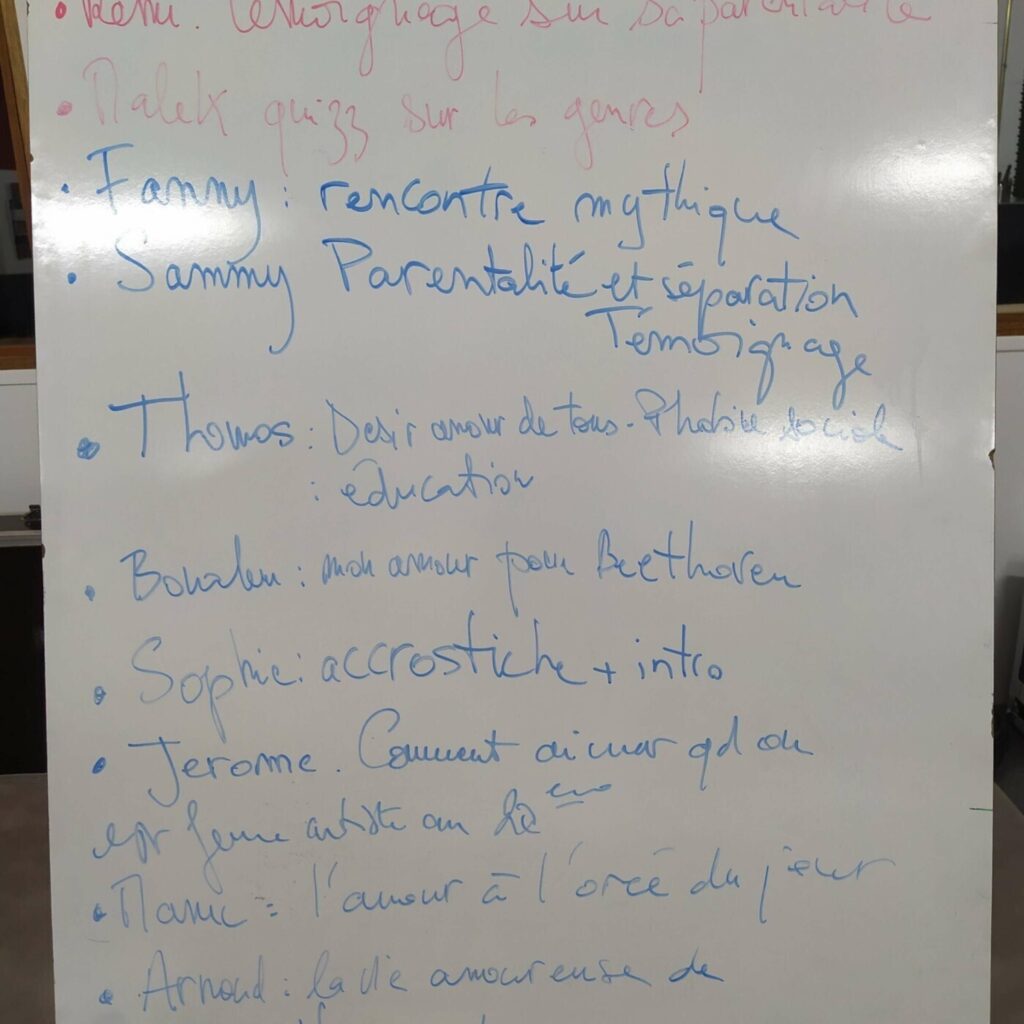 • Rémi. Témoignage sur sa parentalité
• Malek quizz sur les genres
• Fanny : rencontre mythique
• Sammy Parentalité et séparation
Témoignage
• Thomas : Desir amour de tous. Phobie sociale
: éducation
• Boualem : mon amour pour Beethoven
• Sophie : accrostiche + intro
• Jerome. Comment aimer qd on
est femme artiste au
• Marie = l'amour à l'orée du jour
• Arnaud : la vie amoureuse de